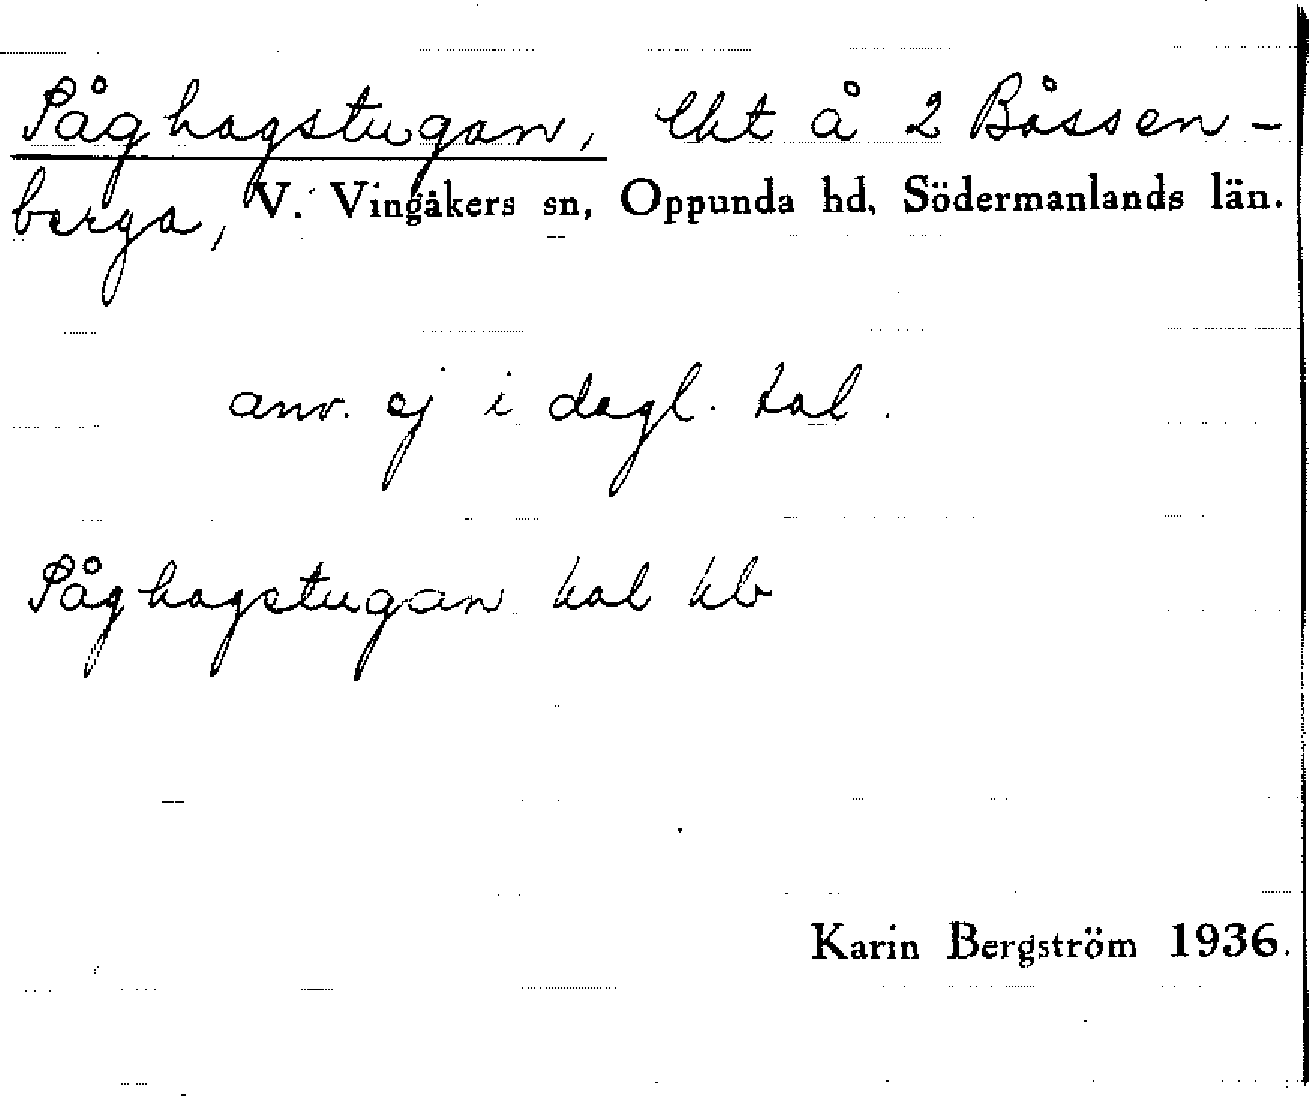 Påghagstugan, lht å 2 Båssen-
berga, V. Vingåkers sn, Oppunda hd, Södermanlands län.
anv. ej i dagl. tal.
Påghagstugan hal hb
Karin Bergström 1936.